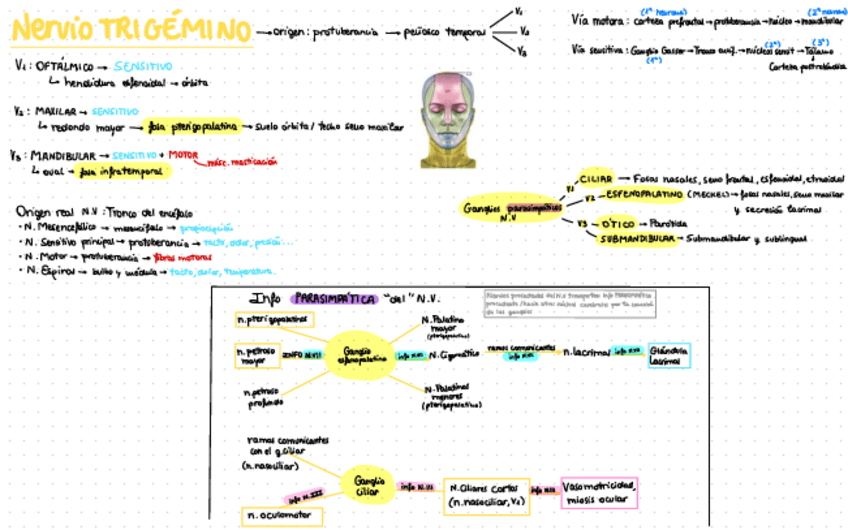 Nervio TRIGÉMINO → origen: protuberancia → peñasco temporal
V1
V2
V3
V1: OFTÁLMICO → SENSITIVO
↳ hendidura esfenoidal → órbita
V2: MAXILAR → SENSITIVO
↳ redondo mayor → fosa pterigopalatina → suelo órbita / techo seno maxilar
V3: MANDIBULAR → SENSITIVO + MOTOR
musc. masticación
↳ oval → fosa infratemporal
Origen real N.V: Tronco del encéfalo
• N. Mesencefálico → mesencéfalo → propiocepción
• N. Sensitivo principal → protuberancia → tacto, dolor, presión...
• N. Motor → protuberancia → fibras motoras
• N. Espiral → bulbo y médula → tacto, dolor, temperatura.
(1ª neurona) (2ª neurona)
Vía motora: corteza prefrontal → protuberancia → núcleo → mandibular
Vía sensitiva: Ganglio Gasser → Tronco → núcleos sensit → Tálamo
(1ª) (2ª) (3ª)
Corteza postrolándica
Ganglios parasimpáticos N.V
V1 CILIAR → Fosas nasales, seno frontal, esfenoidal, etmoidal
V2 ESFENOPALATINO (MECKEL) → fosas nasales, seno maxilar
y secreción lacrimal
V3 ÓTICO → Parótida
SUBMANDIBULAR → Submandibular y sublingual
Info PARASIMPÁTICA "del" N.V.
n. pterigopalatinos
n. petroso mayor
INFO N.VII
n. petroso profundo
Ganglio esfenopalatino
N. Palatino mayor (pterigopalatino)
info N.VII
N. Cigomático
ramos comunicantes
info N.VII
n. lacrimal
info N.VII
Glándula lacrimal
N. Palatinos menores (pterigopalatino)
ramos comunicantes con el g. ciliar (n. nasociliar)
info N.III
n. oculomotor
Ganglio ciliar
N. Ciliares cortos (n. nasociliar, V1)
Vasomotricidad, miosis ocular